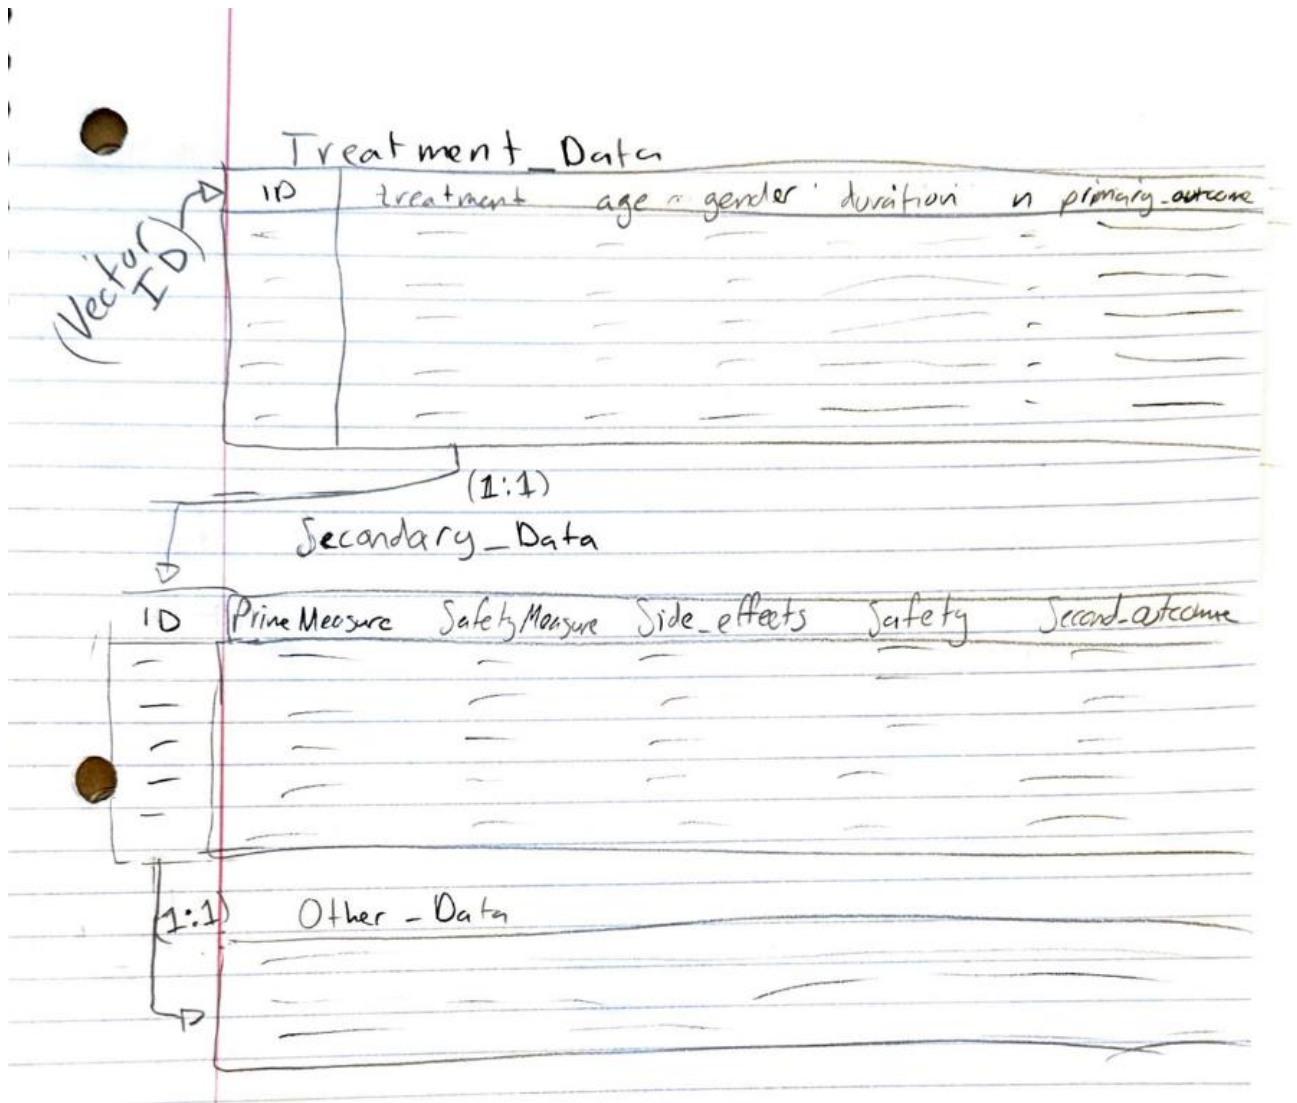 Treatment_Data
ID treatment age gender duration n primary_outcome
(Vector ID)
(1:1)
Secondary_Data
ID PrimeMeasure SafetyMeasure Side_effects Safety Second_outcome
(1:1) Other_Data